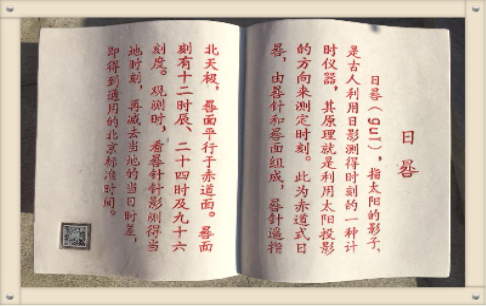 日晷
日晷（guǐ），指太阳的影子，
是古人利用日影测得时刻的一种计
时仪器，其原理就是利用太阳投影
的方向来测定时刻。此为赤道式日
晷，由晷针和晷面组成，晷针遥指
北天极，晷面平行于赤道面。晷面
刻有十二时辰、二十四时及九十六
刻度。观测时，看晷针针影测得当
地时刻，再减去当地的当日时差，
即得到通用的北京标准时间。